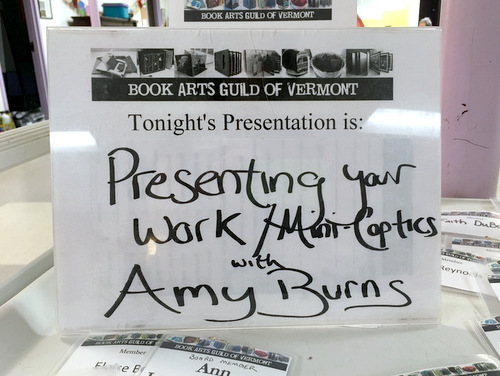 BOOK ARTS GUILD OF VERMONT
BOOK ARTS GUILD OF VERMONT
Tonight's Presentation is:
Presenting your
Work / Mini-Coptics
with
Amy Burns
Member
BOOK ARTS GUILD OF
Member
BOARD MEMBER
Ann